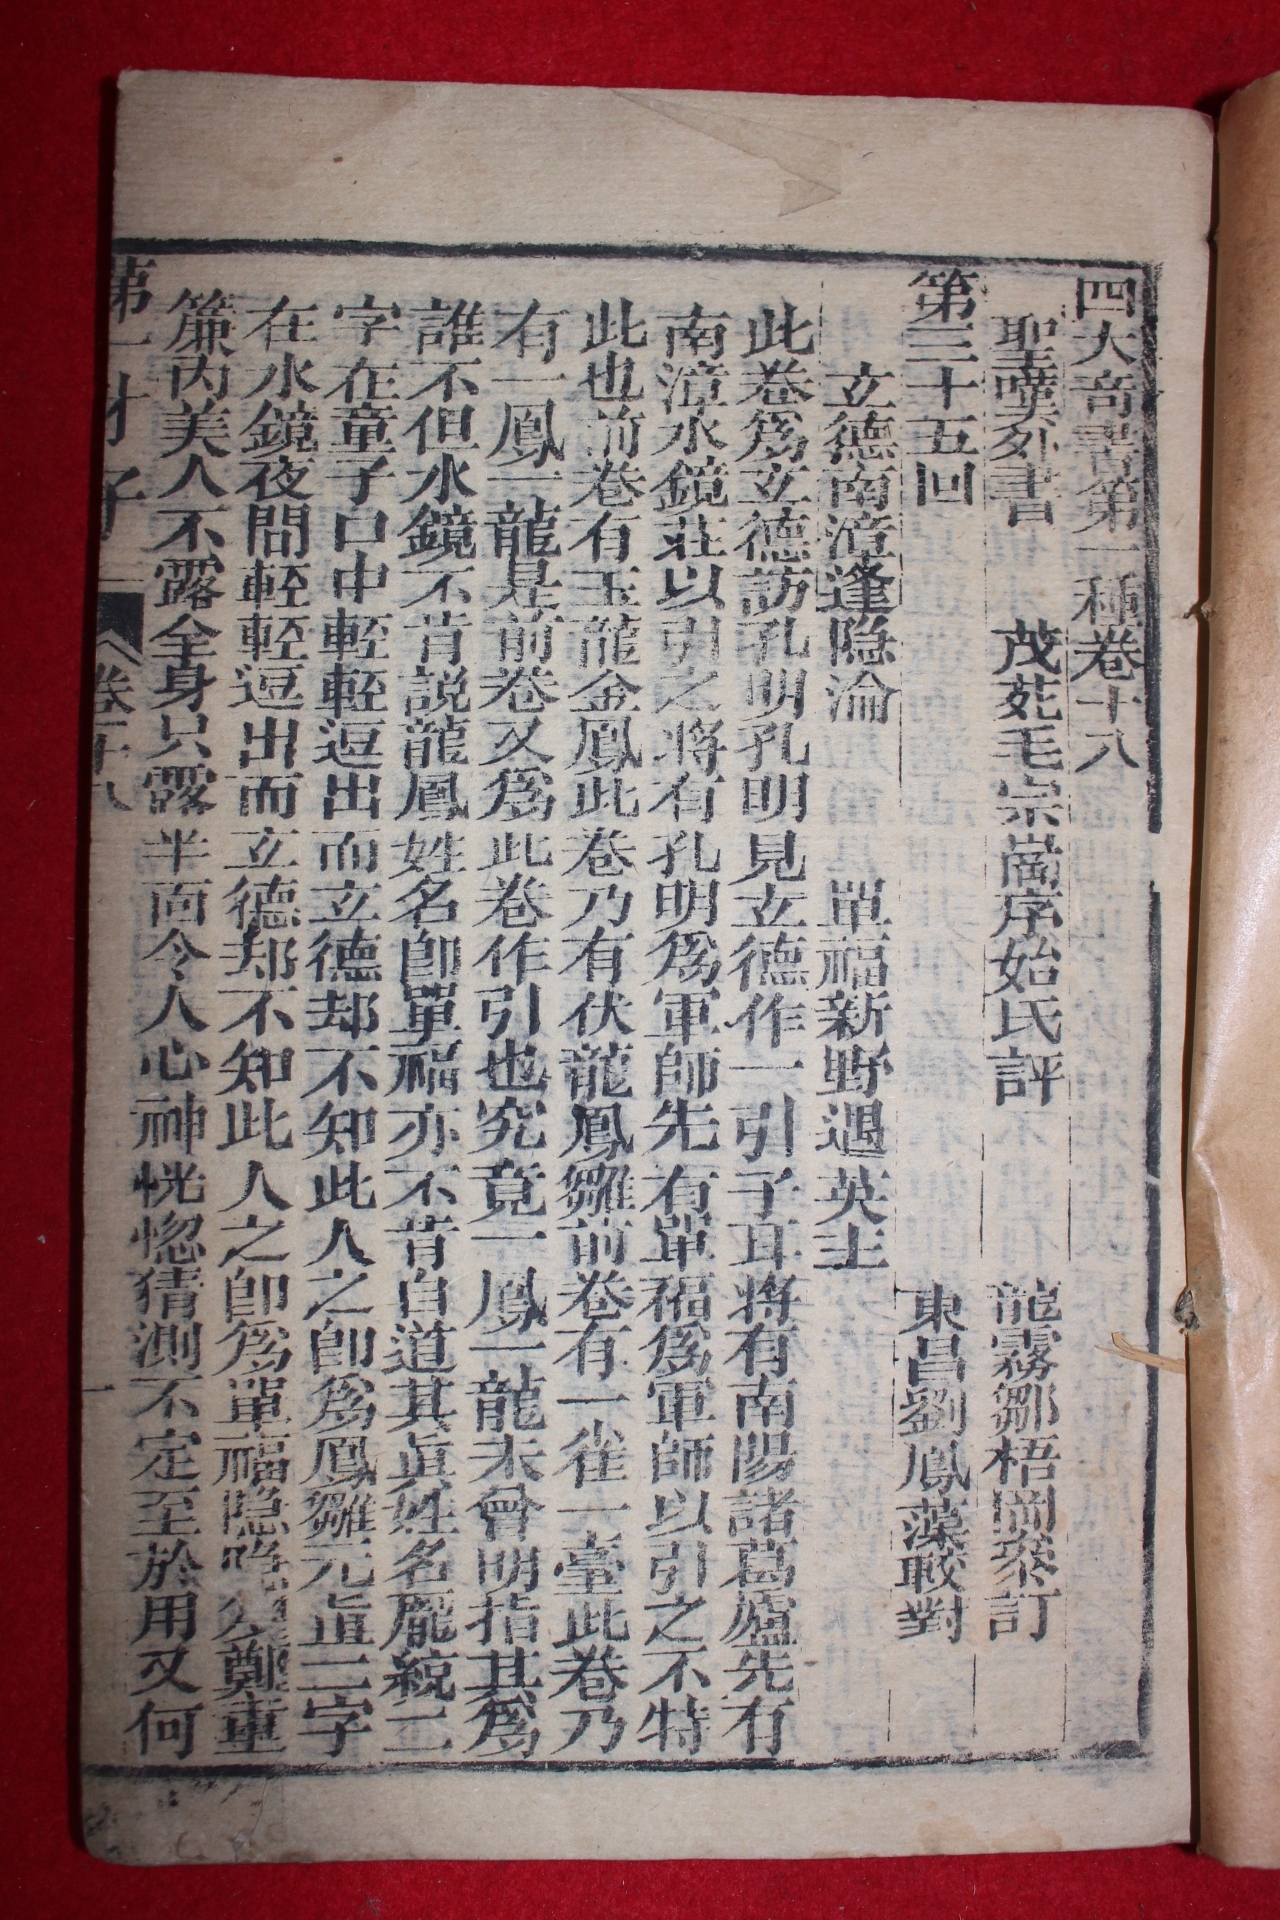 四大竒書第一種卷十八
聖嘆外書 茂苑毛宗崗序始氏評 龍霧鄒梧岡叅訂
第三十五回 東昌劉鳳藻較對
玄德南漳逢隐淪 單福新野遇英主
此卷爲玄德訪孔明孔明見玄德作一引子耳將有南陽諸葛廬先有
南漳水鏡莊以引之將有孔明爲軍師先有單福爲軍師以引之不特
此也前卷有玉龍金鳳此卷乃有伏龍鳳雛前卷有一雀一臺此卷乃
有一鳳一龍是前卷又爲此卷作引也究竟一鳳一龍未曾明指其爲
誰不但水鏡不肯説龍鳳姓名卽單福亦不肯自道其眞姓名龐統二
字在童子口中輕輕逗出而玄德却不知此人之卽爲鳳雛元直二字
在水鏡夜間輕輕逗出而玄德却不知此人之卽爲單福隐隐公鄭重
簾内美人不露全身只露半面令人心神恍惚猜測不定至於用又何
第一才子 卷十八 一